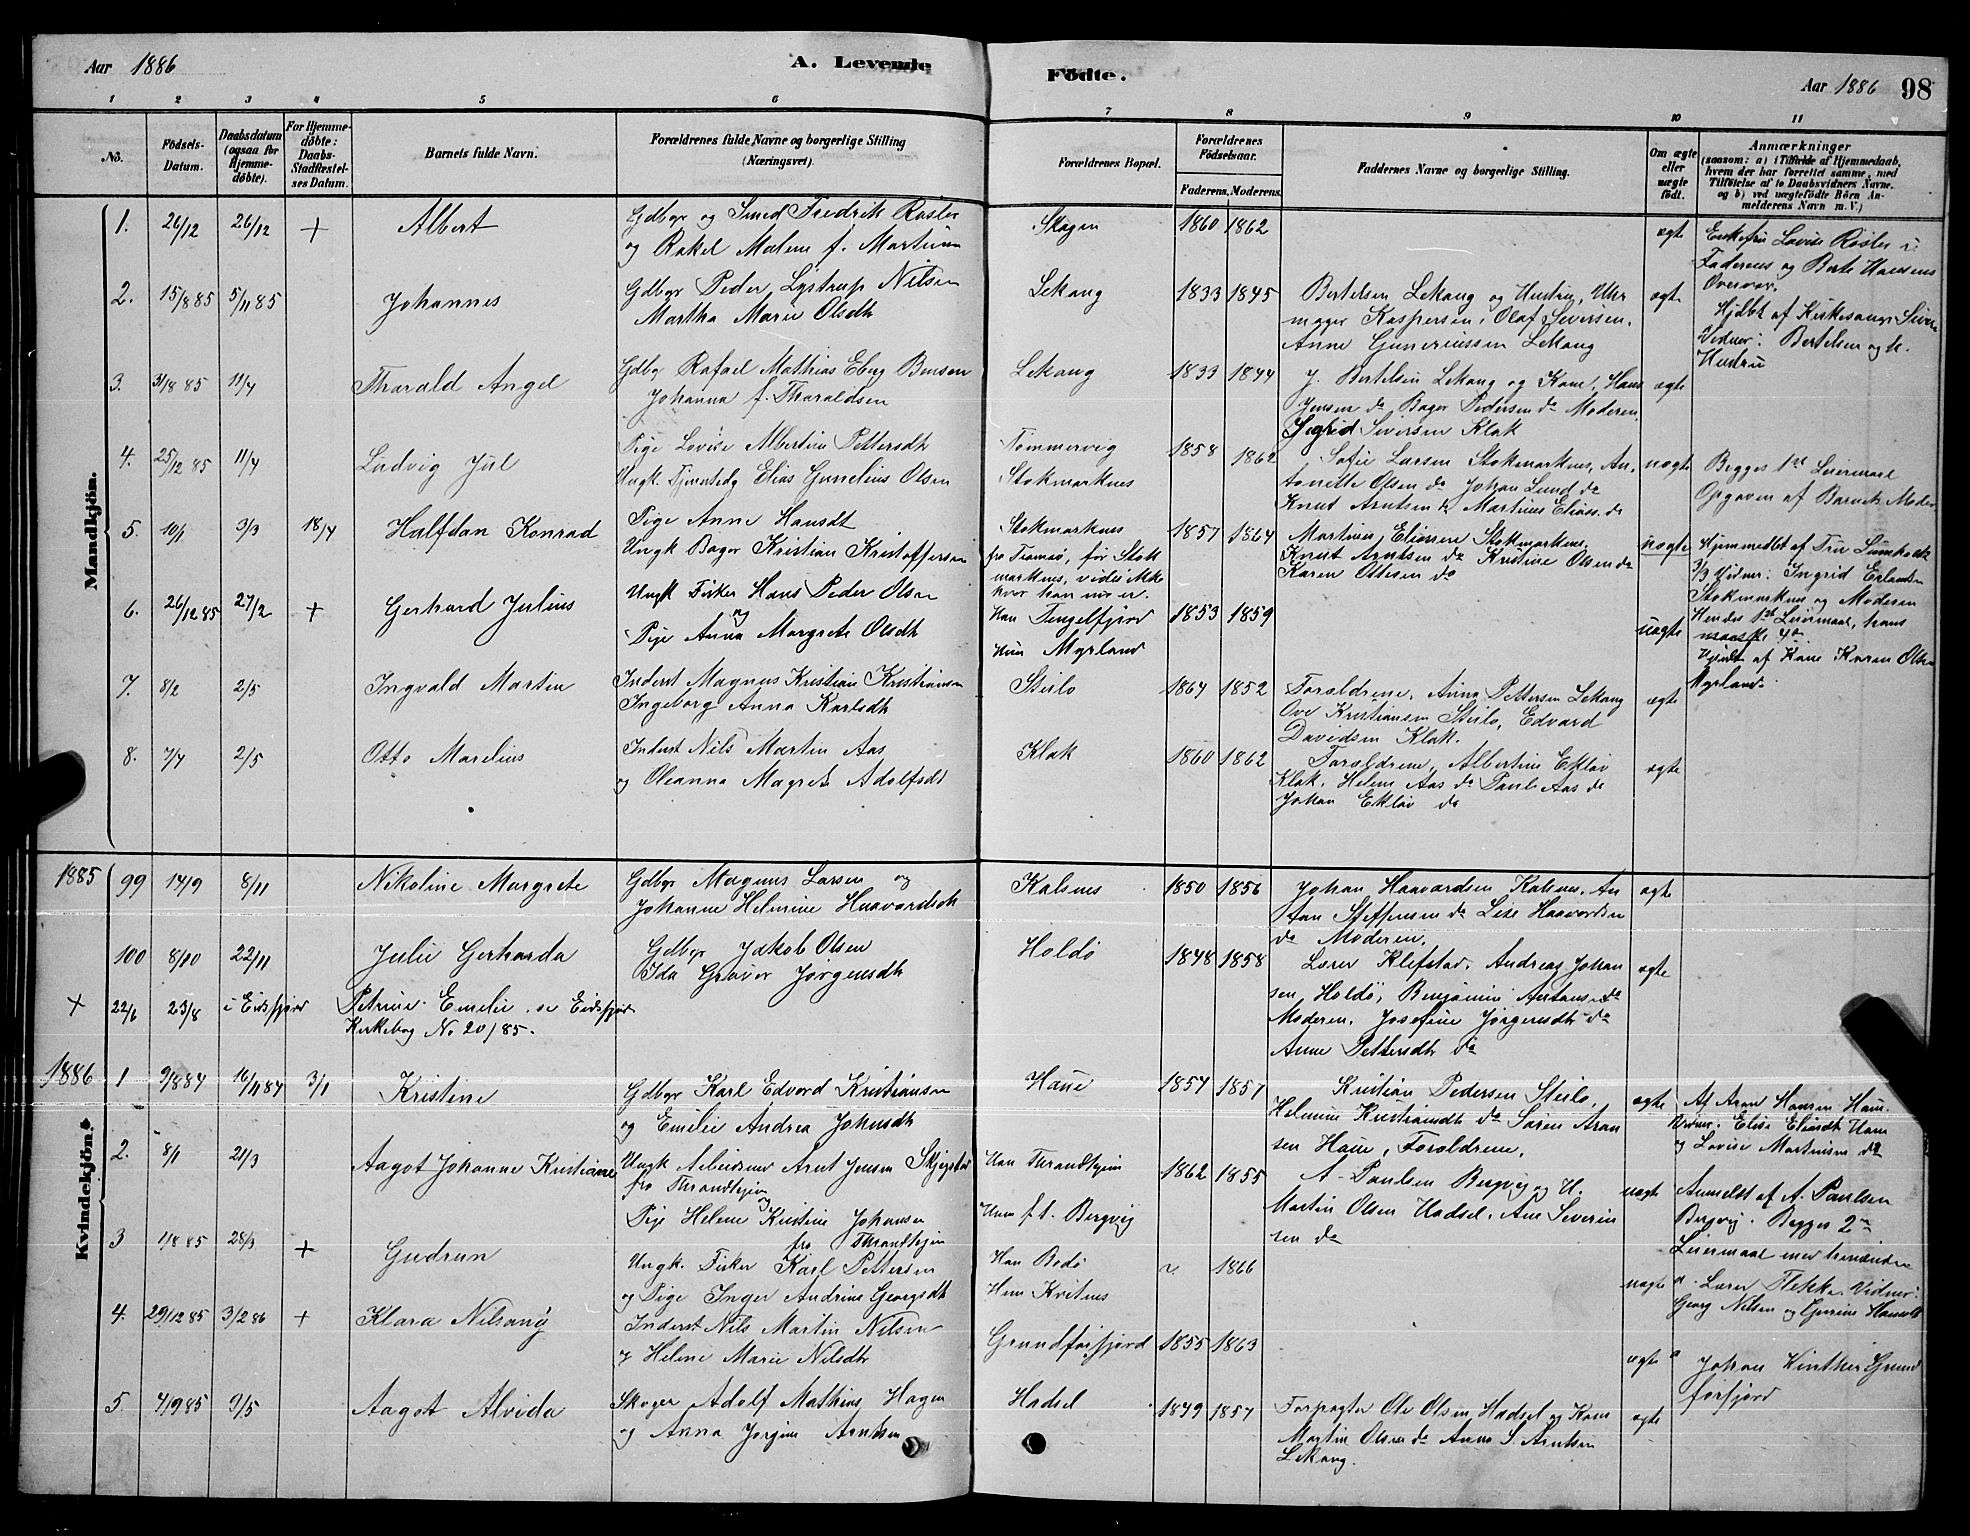 Aar 1886
A. Levende
Födte.
Aar 1886
98
1 2 3 4 5 6 7 8 9 10 11
No.
Födsels-
Datum.
Daabsdatum
(ogsaa for
Hjemme-
döbte).
For Hjemme-
döbte:
Daabs-
Stadfæstel-
ses Datum.
Barnets fulde Navn.
Forældrenes fulde Navne og borgerlige Stilling
(Næringsvei).
Forældrenes Bopæl.
Forældrenes
Födselsaar.
Faderens. Moderens.
Faddernes Navne og borgerlige Stilling.
Om ægte
eller
uægte
födt.
Anmærkninger
(saasom: a) i Tilfælde af Hjemmedaab,
hvem der har forrettet samme, med
Tilföielse af to Daabsvidners Navne.
og b) ved uægtefödte Börn An-
melderens Navn m. V.)
Mandkjön.
1. 26/12 26/12 + Albert
Gdbgr og Smed Fredrik Rösler
og Rakel Malene f. Martinsen
Skagen 1860 1862 ægte
Enkefru Lovise Rösler
Faderens og Berte Hansens
2. 15/8 85 5/11 85 Johannes
Gdbgr Peder Lystrup Nilsen
Martha Marie Olsdtr
Lekang 1833 1845
Bertelsen Lekang og Hustru, Uhr
mager Kaspersen, Olaf Seversen,
Anne Gunerussen Lekang
ægte
Hjdbt af Kirkesanger
Vidner: Bertelsen og
Hustru
3. 31/8 85 11/4 Tharald Angel
Gdbgr Rafael Mathias Eberg Bensen
Johanna f. Tharaldsen
Lekang 1833 1844
J. Bertelsen Lekang og Kone, Hans
Jensen do Bager Pedersen do Moderen
Sigrid Seversen Klak
ægte
4. 25/12 85 11/4 Ludvig Jul
Pige Lovise Albertine Pettersdtr
Ungk. Elias Gunelius Olsen
Tömmervig
Stokmarknes
1858 1862
Sofie Larsen Stokmarknes, An-
tonette Olsen do Johan Lund do
Knut Arntsen do Martinus Eliass. do
uægte
Begges 1st Leiermaal
Opgaven af Barnets Moder
5. 10/1 3/3 18/4 Halfdan Konrad
Pige Anne Hansdt
Ungk Bager Kristian Kristoffersen
Stokmarknes
fra Tromsö, för Stok
marknes, vides ikke
hvor han nu er.
1857 1864
Martinus Eliassen Stokmarknes,
Knut Arntsen do Kristine Olsen do
Karen Ottesen do
uægte
Hjemmedbt af Fru
3/3 Vidner: Ingrid Erlandsen
Stokmarknes og Moderen
6. 26/12 85 27/2 + Gerhard Julius
Ungk Fisker Hans Peder Olsen
og
Pige Anna Margrete Olsdtr
Han Tengelfjord
Hun Myrland
1853 1859
uægte
Hendes 1st Leiermaal, hans
maaske 4de
Hjdbt af Kone Karen Olsen
Myrland.
7. 8/2 2/5 Ingvald Martin
Inderst Magnus Kristian Kristiansen
Ingeborg Anna Karlsdtr
Steilo 1864 1852
Forældrene, Anna Pettersen Lekang
Ove Kristiansen Steilo, Edvard
Davidsen Klak.
ægte
8. 7/4 2/5 Otto Marelius
Inderst Nils Martin Aas
og Oleanna Magrete Adolfsdt
Klak 1860 1862
Forældrene, Albertine Eklöv
Klak, Helene Aas do Paul Aas do
Johan Eklöv do
ægte
1885
99 14/9 8/11 Nikoline Margrete
Gdbgr Magnus Larsen og
Johanne Helmine Haavardsdt
Kalsnes 1850 1856
Johan Haavardsen Kalsnes, An
ton Steffensen do Lise Haavardsen
do Moderen.
ægte
100 8/10 22/11 Julie Gerharda
Gdbgr Jakob Olsen
Ida Gröver Jörgensdtr
Holdö 1848 1858
Lærer Klefstad, Andreas Johan
sen, Holdö, Benjamin Antonsen do
Moderen, Josefine Jörgensdtr do
Anne Pettersdtr do
ægte
+ 22/6 23/8 i Eidsfjord
Petrine Emelie se Eidsfjord
Kirkebog No 20/85.
1886
Kvindekjön.
1 9/8 84 16/11 84 3/1 Kristine
Gdbgr Karl Edvard Kristiansen
og Emilie Andrea Johnsdtr
Haue 1854 1857
Kristian Pedersen Steilo,
Helmine Kristiansdt do Sören Aron
sen Haue, Forældrene.
ægte
Af Aron Hansen Haue.
Vidner. Elise Eliasdt Haue
og Lovise Martinsen do
2. 8/1 21/3 Aagot Johanne Kristianne
Ungk Arbeidsmd Arnt Jensen Skjegstad
fra Throndhjem
og
Pige Helene Kristine Johansen
fra Throndhjem
Han Throndhjem
Hun f.t. Bergvig
1862 1855
A. Paulsen Bergvig og H.
Martin Olsen Hadsel. Ane Severin
sen do
uægte
Anmeldt af A. Paulsen
Bergvig. Begges 2det
Leiermaal med hinanden
3 1/8 85 28/3 + Gudrun
Ungk. Fisker Karl Pettersen
og Pige Inger Andrine Georgsdt
Han Bodö
Hun Kvitnes
1866
uægte
Lærer Flekke. Vidner:
Georg Nilsen og Gurine Hansdt
4. 29/12 85 3/2 86 + Klara Nilsang
Inderst Nils Martin Nilsen
og Helene Marie Nilsdtr
Grundforfjord 1855 1863
ægte
Johan Winther Grund
forfjord
5. 4/9 85 9/5 Aagot Alvida
Skoger Adolf Mathias Hagen
og Anna Jorgine Arntsen
Hadsel 1849 1857
Forpagter Ole Olsen Hadsel og Kone
Martin Olsen do Anna S. Arntsen
Lekang.
ægte